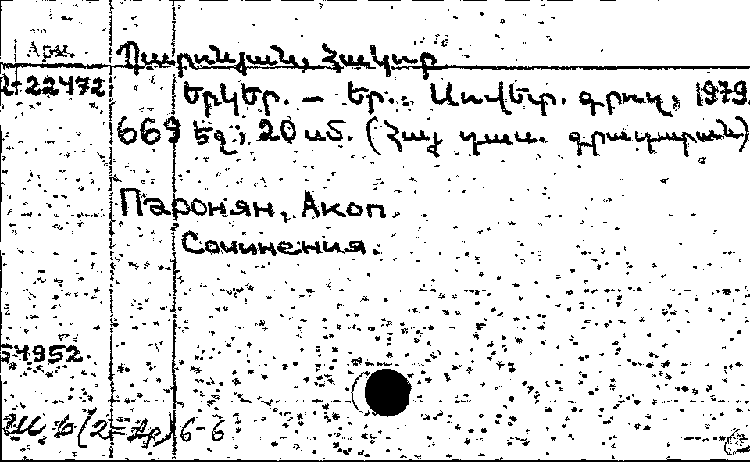 Арм.
Պարոնյան, Հակոբ
2-22472
Երկեր. — Եր.: Սովետ. գրող, 1979.
669 էջ; 20 սմ. (Հայ դաս. գրադարան)
Паронян, Акоп.
Сочинения.
54952
Ш 6(2=Ар) 6-6